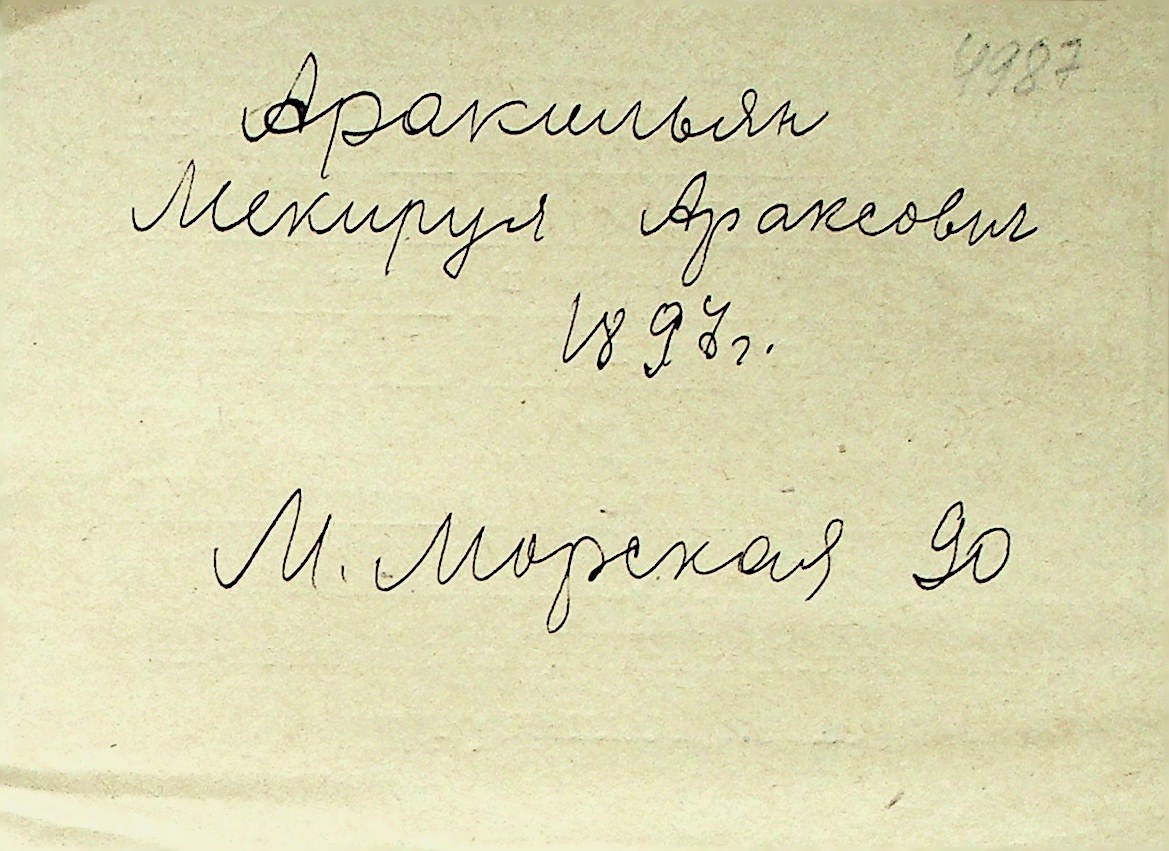 4987
Аракильян
Мекирул Араксович
1897г.
М. Морская 90